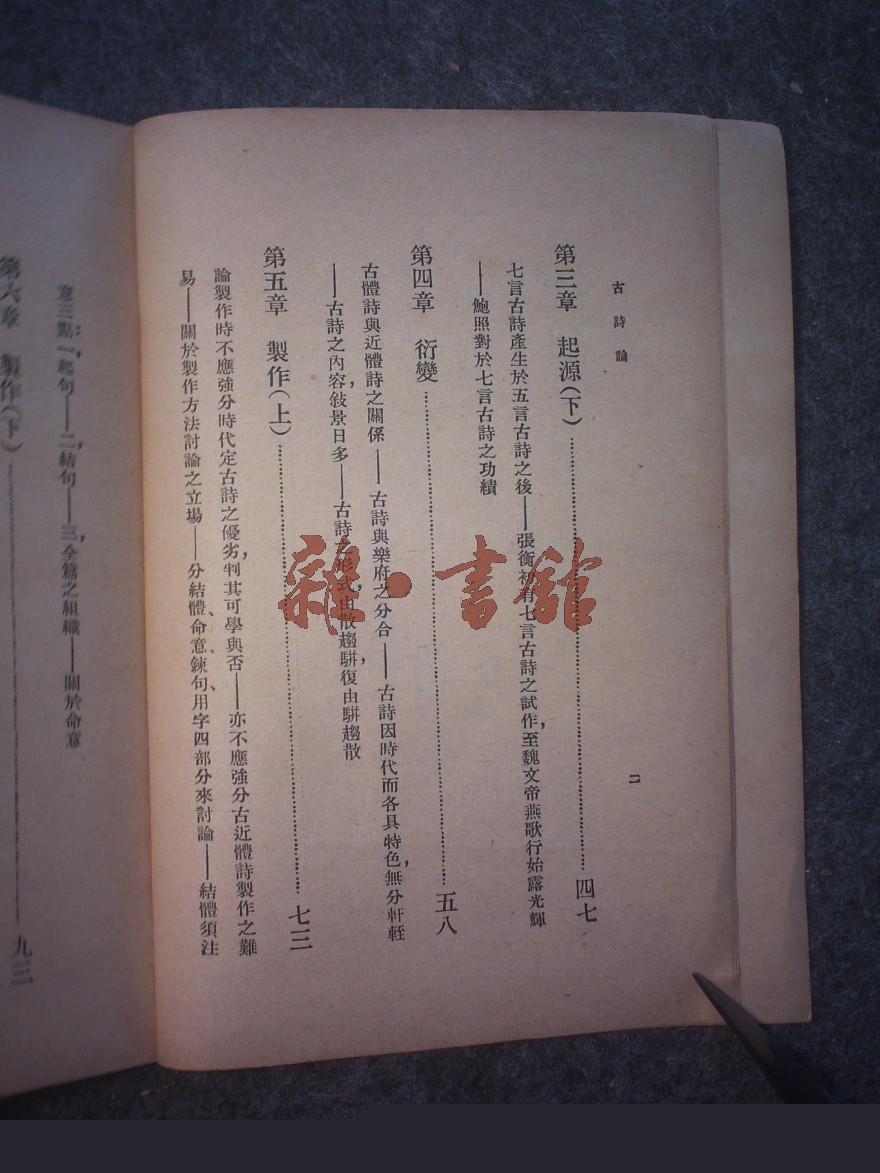 古詩論
二
第三章 起源(下)……四七
七言古詩產生於五言古詩之後——張衡初有七言古詩之試作,至魏文帝燕歌行始露光輝
——鮑照對於七言古詩之功績
第四章 衍變……五八
古體詩與近體詩之關係——古詩與樂府之分合——古詩因時代而各具特色,無分軒輊
——古詩之內容,敍景日多——古詩之形式,由散趨駢,復由駢趨散
第五章 製作(上)……七三
論製作時不應強分時代定古詩之優劣,判其可學與否——亦不應強分古近體詩製作之難
易——關於製作方法討論之立場——分結體、命意、鍊句、用字四部分來討論——結體須注
意三點:一,起句——二,結句——三,全篇之組織——關於命意
第六章 製作(下)……九三
雜·書館